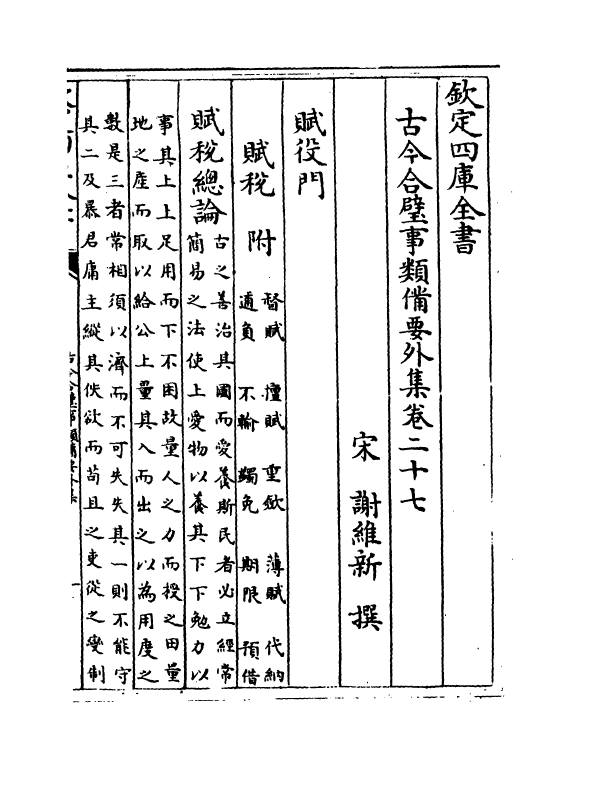 欽定四庫全書
古今合璧事類備要外集卷二十七
宋 謝維新 撰
賦役門
賦稅 附 督賦 擅賦 重歛 薄賦 代納
逋負 不輸 蠲免 期限 預借
賦稅總論 古之善治其國而愛養斯民者必立經常
簡易之法使上愛物以養其下下勉力以
事其上上足用而下不困故量人之力而授之田量
地之產而取以給公上量其入而出之以為用度之
數是三者常相須以濟而不可失失其一則不能守
其二及暴君庸主縱其佚欲而苟且之吏從之變制